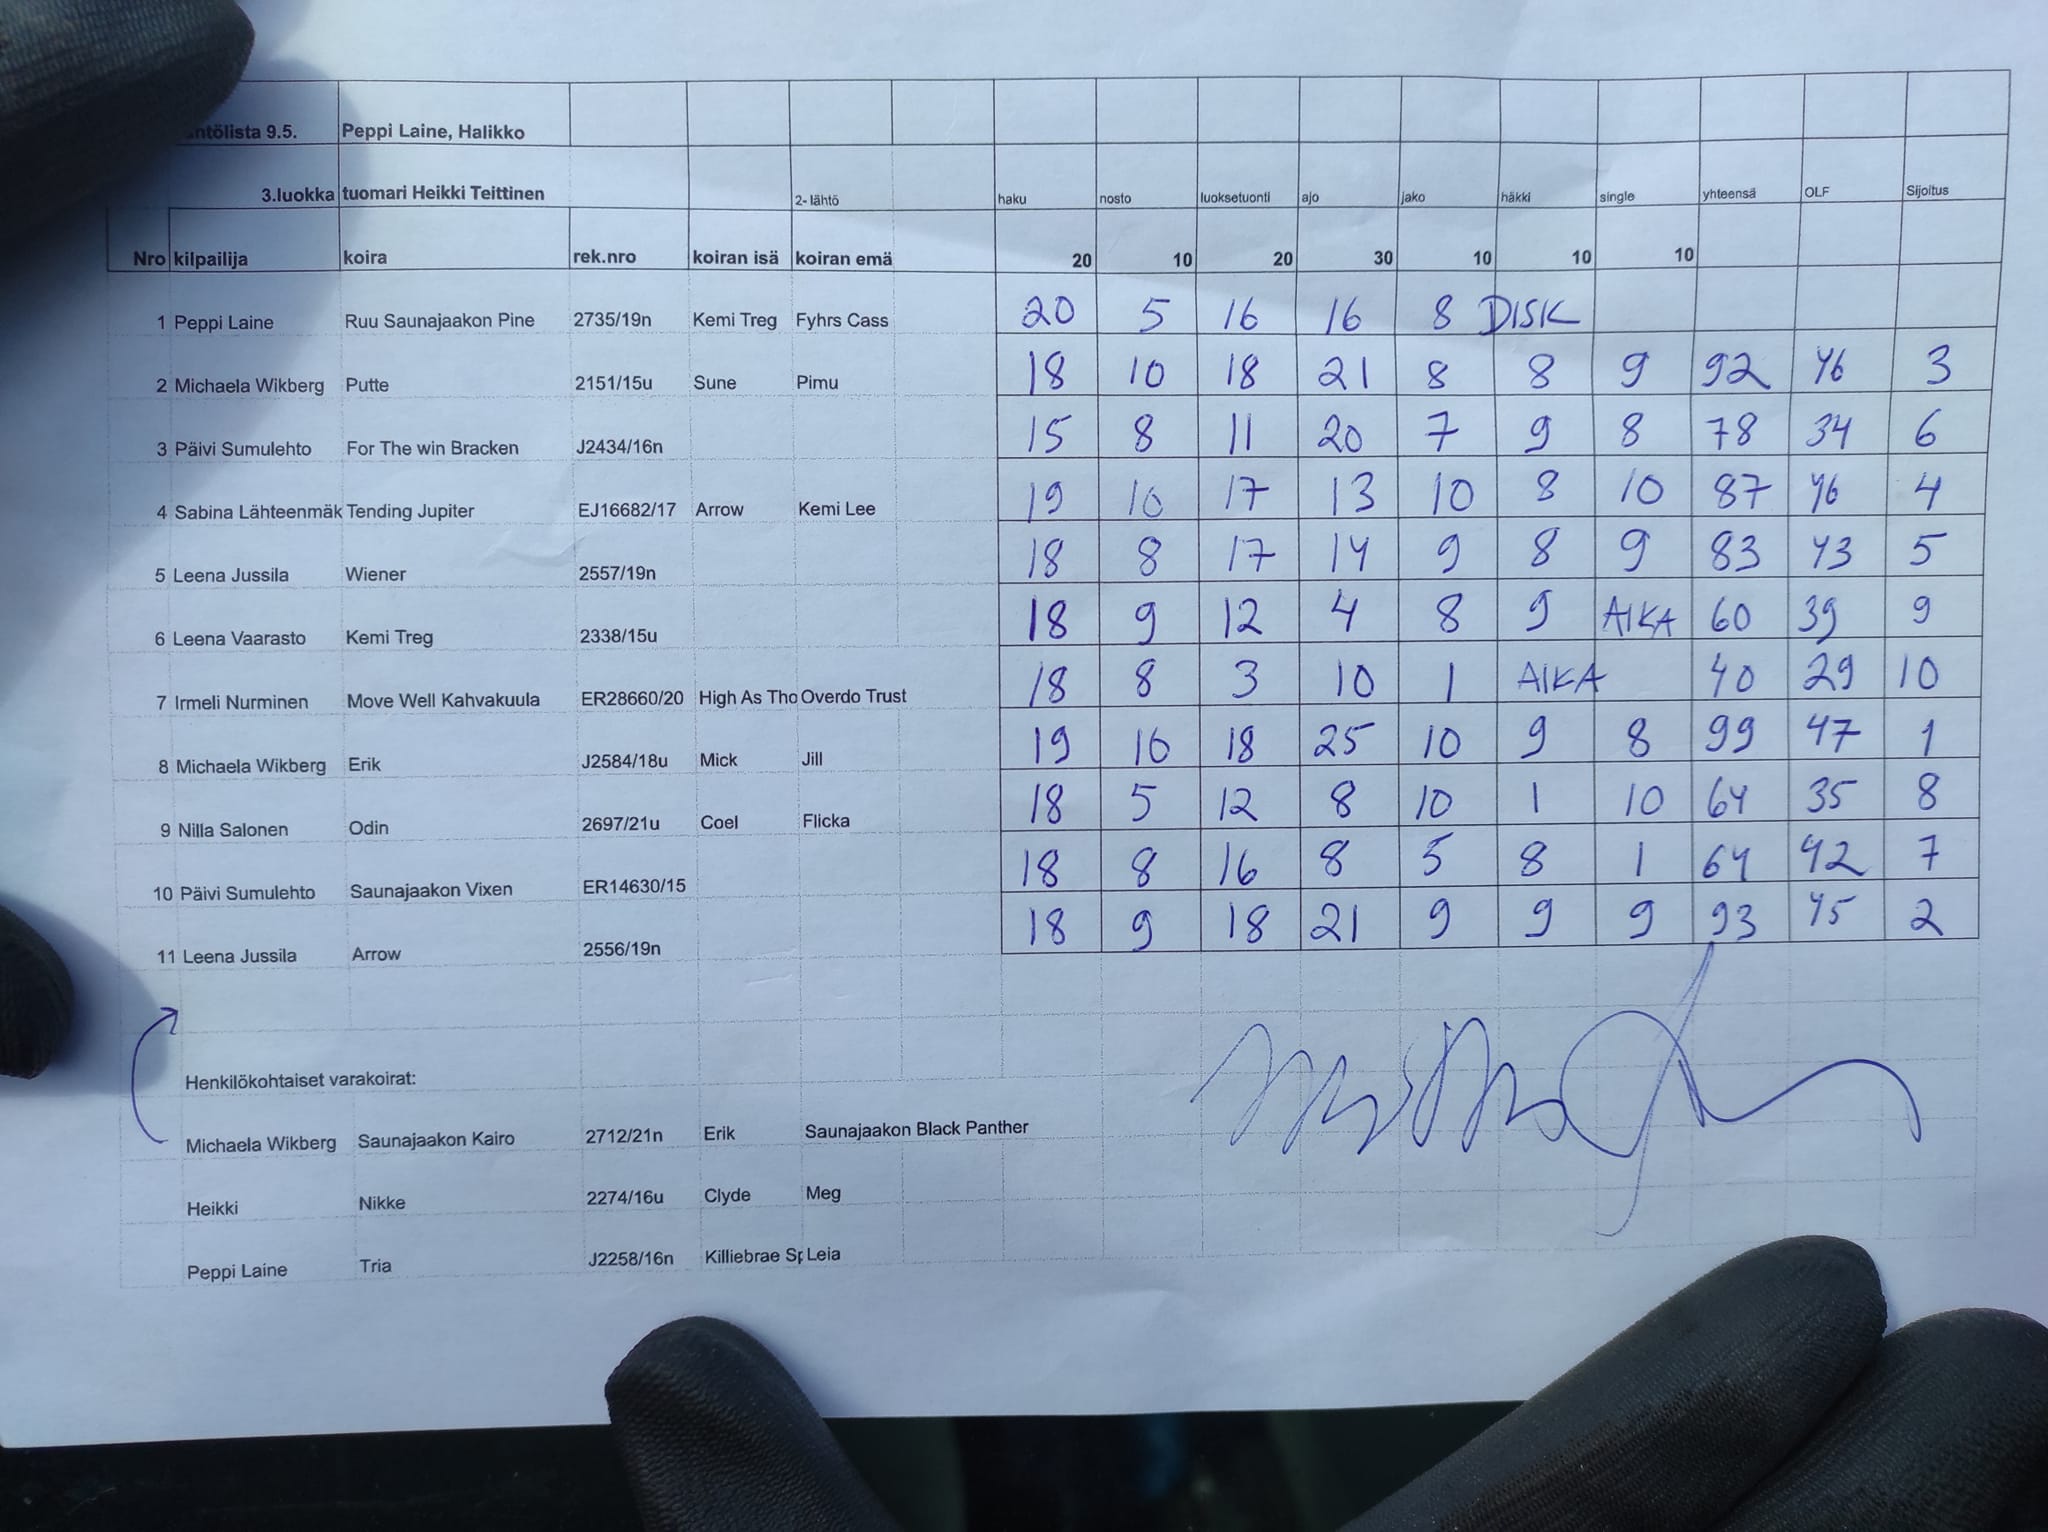 ntölista 9.5. Peppi Laine, Halikko
3.luokka tuomari Heikki Teittinen 2- lähtö haku nosto luoksetuonti ajo jako häkki single yhteensä OLF Sijoitus
Nro kilpailija koira rek.nro koiran isä koiran emä 20 10 20 30 10 10 10
1 Peppi Laine Ruu Saunajaakon Pine 2735/19n Kemi Treg Fyhrs Cass 20 5 16 16 8 DISK
2 Michaela Wikberg Putte 2151/15u Sune Pimu 18 10 18 21 8 8 9 92 46 3
3 Päivi Sumulehto For The win Bracken J2434/16n 15 8 11 20 7 9 8 78 34 6
4 Sabina Lähteenmäk Tending Jupiter EJ16682/17 Arrow Kemi Lee 19 10 17 13 10 8 10 87 46 4
5 Leena Jussila Wiener 2557/19n 18 8 17 14 9 8 9 83 43 5
6 Leena Vaarasto Kemi Treg 2338/15u 18 9 12 4 8 9 AIKA 60 39 9
7 Irmeli Nurminen Move Well Kahvakuula ER28660/20 High As Tho Overdo Trust 18 8 3 10 1 AIKA 40 29 10
8 Michaela Wikberg Erik J2584/18u Mick Jill 19 10 18 25 10 9 8 99 47 1
9 Nilla Salonen Odin 2697/21u Coel Flicka 18 5 12 8 10 1 10 64 35 8
10 Päivi Sumulehto Saunajaakon Vixen ER14630/15 18 8 16 8 5 8 1 64 42 7
11 Leena Jussila Arrow 2556/19n 18 9 18 21 9 9 9 93 45 2
Henkilökohtaiset varakoirat:
Michaela Wikberg Saunajaakon Kairo 2712/21n Erik Saunajaakon Black Panther
Heikki Nikke 2274/16u Clyde Meg
Peppi Laine Tria J2258/16n Killiebrae Sp Leia